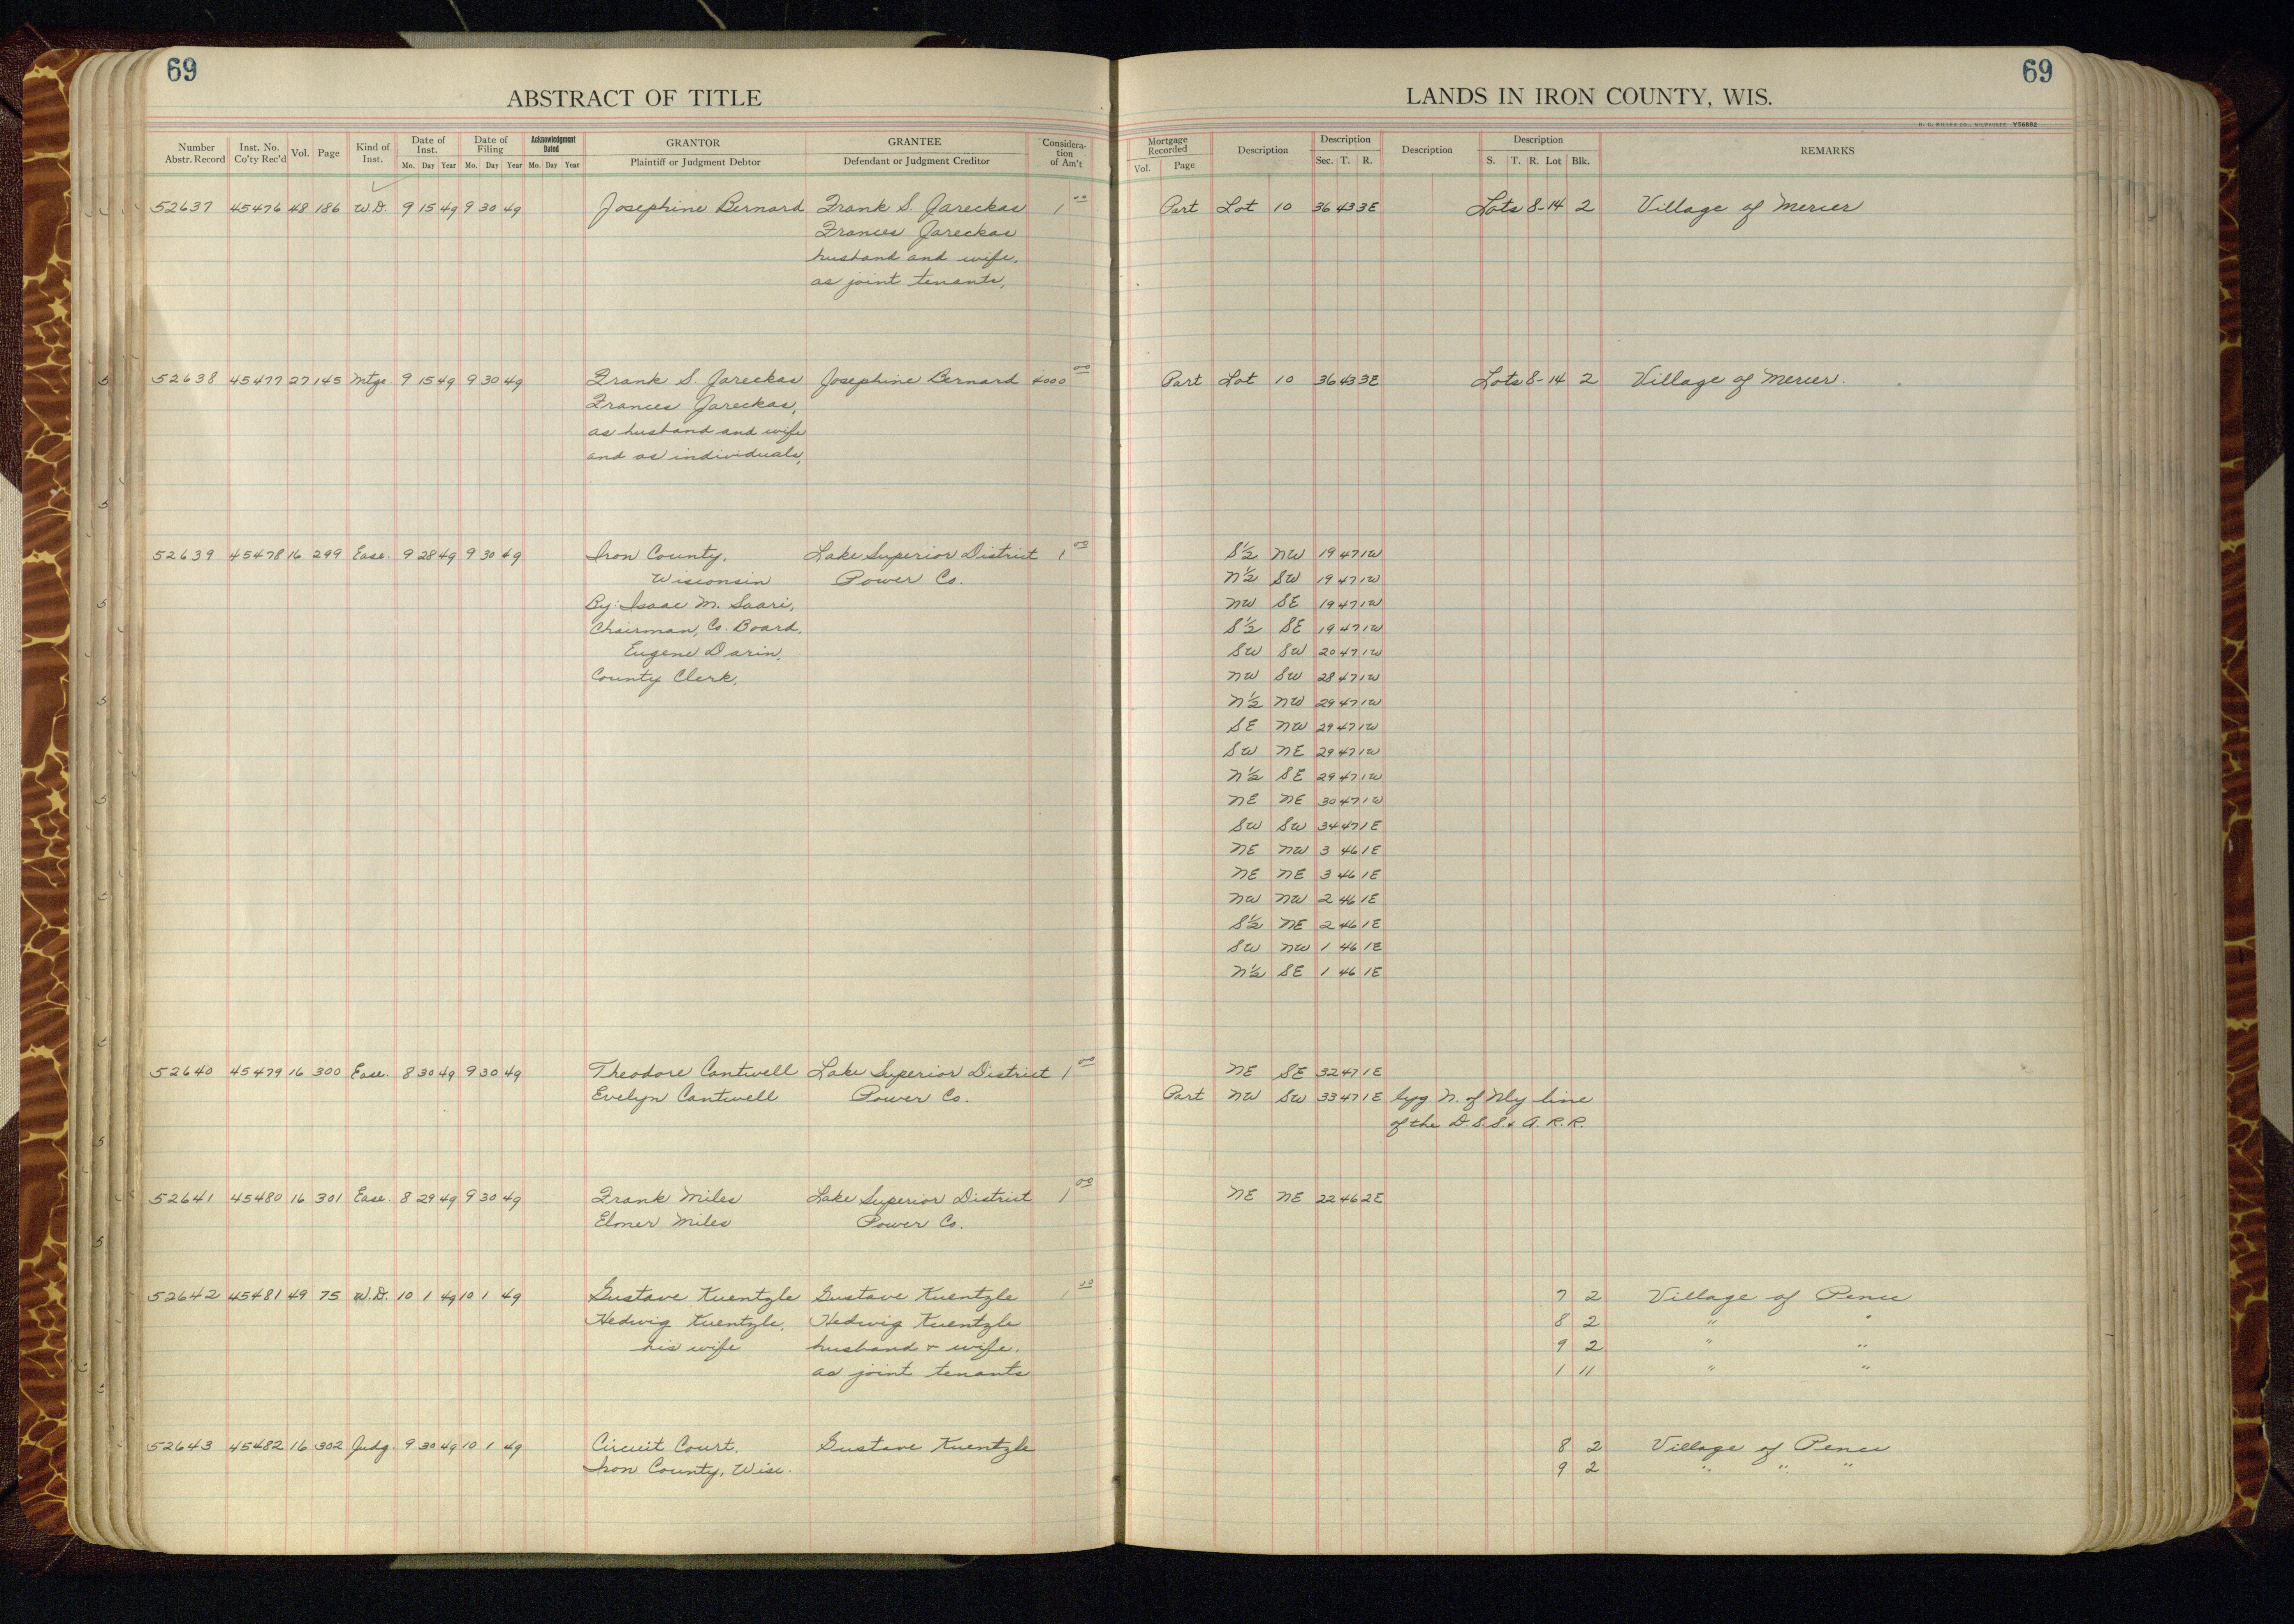 69
69
ABSTRACT OF TITLE
LANDS IN IRON COUNTY, WIS.
H. C. MILLER CO., MILWAUKEE Y56882
Number Abstr. Record Inst. No. Co'ty Rec'd Vol. Page Kind of Inst. Date of Inst. Mo. Day Year Date of Filing Mo. Day Year Acknowledgment Dated Mo. Day Year GRANTOR Plaintiff or Judgment Debtor GRANTEE Defendant or Judgment Creditor Considera- tion of Am't Mortgage Recorded Vol. Page Description Description Sec. T. R. Description Description S. T. R. Lot Blk. REMARKS
52637 45476 48 186 W.D. 9 15 49 9 30 49 Josephine Bernard Frank S. Jareckas 1 00 Part Lot 10 36 43 3E Lots 8-14 2 Village of Mercer
Frances Jareckas
husband and wife,
as joint tenants,
52638 45477 27 145 Mtge. 9 15 49 9 30 49 Frank S. Jareckas Josephine Bernard 4000 00 Part Lot 10 36 43 3E Lots 8-14 2 Village of Mercer.
Frances Jareckas,
as husband and wife
and as individuals,
52639 45478 16 299 Ease. 9 28 49 9 30 49 Iron County, Lake Superior District 1 00 S½ NW 19 47 1W
Wisconsin Power Co. N½ SW 19 47 1W
By: Isaac M. Saari, NW SE 19 47 1W
Chairman, Co. Board, S½ SE 19 47 1W
Eugene Darin, SW SW 20 47 1W
County Clerk, NW SW 28 47 1W
N½ NW 29 47 1W
SE NW 29 47 1W
SW NE 29 47 1W
N½ SE 29 47 1W
NE NE 30 47 1W
SW SW 34 47 1E
NE NW 3 46 1E
NE NE 3 46 1E
NW NW 2 46 1E
S½ NE 2 46 1E
SW NW 1 46 1E
N½ SE 1 46 1E
52640 45479 16 300 Ease. 8 30 49 9 30 49 Theodore Cantwell Lake Superior District 1 00 NE SE 32 47 1E
Evelyn Cantwell Power Co. Part NW SW 33 47 1E lyg N. of Nly line
of the D.S.S. & A. R.R.
52641 45480 16 301 Ease. 8 29 49 9 30 49 Frank Miles Lake Superior District 1 00 NE NE 22 46 2E
Elmer Miles Power Co.
52642 45481 49 75 W.D. 10 1 49 10 1 49 Gustave Kuentzle Gustave Kuentzle 1 00 7 2 Village of Pence
Hedwig Kuentzle, Hedwig Kuentzle 8 2 " "
his wife husband & wife, 9 2 " "
as joint tenants 1 11 " "
52643 45482 16 302 Judg. 9 30 49 10 1 49 Circuit Court, Gustave Kuentzle 8 2 Village of Pence
Iron County, Wisc. 9 2 " " "